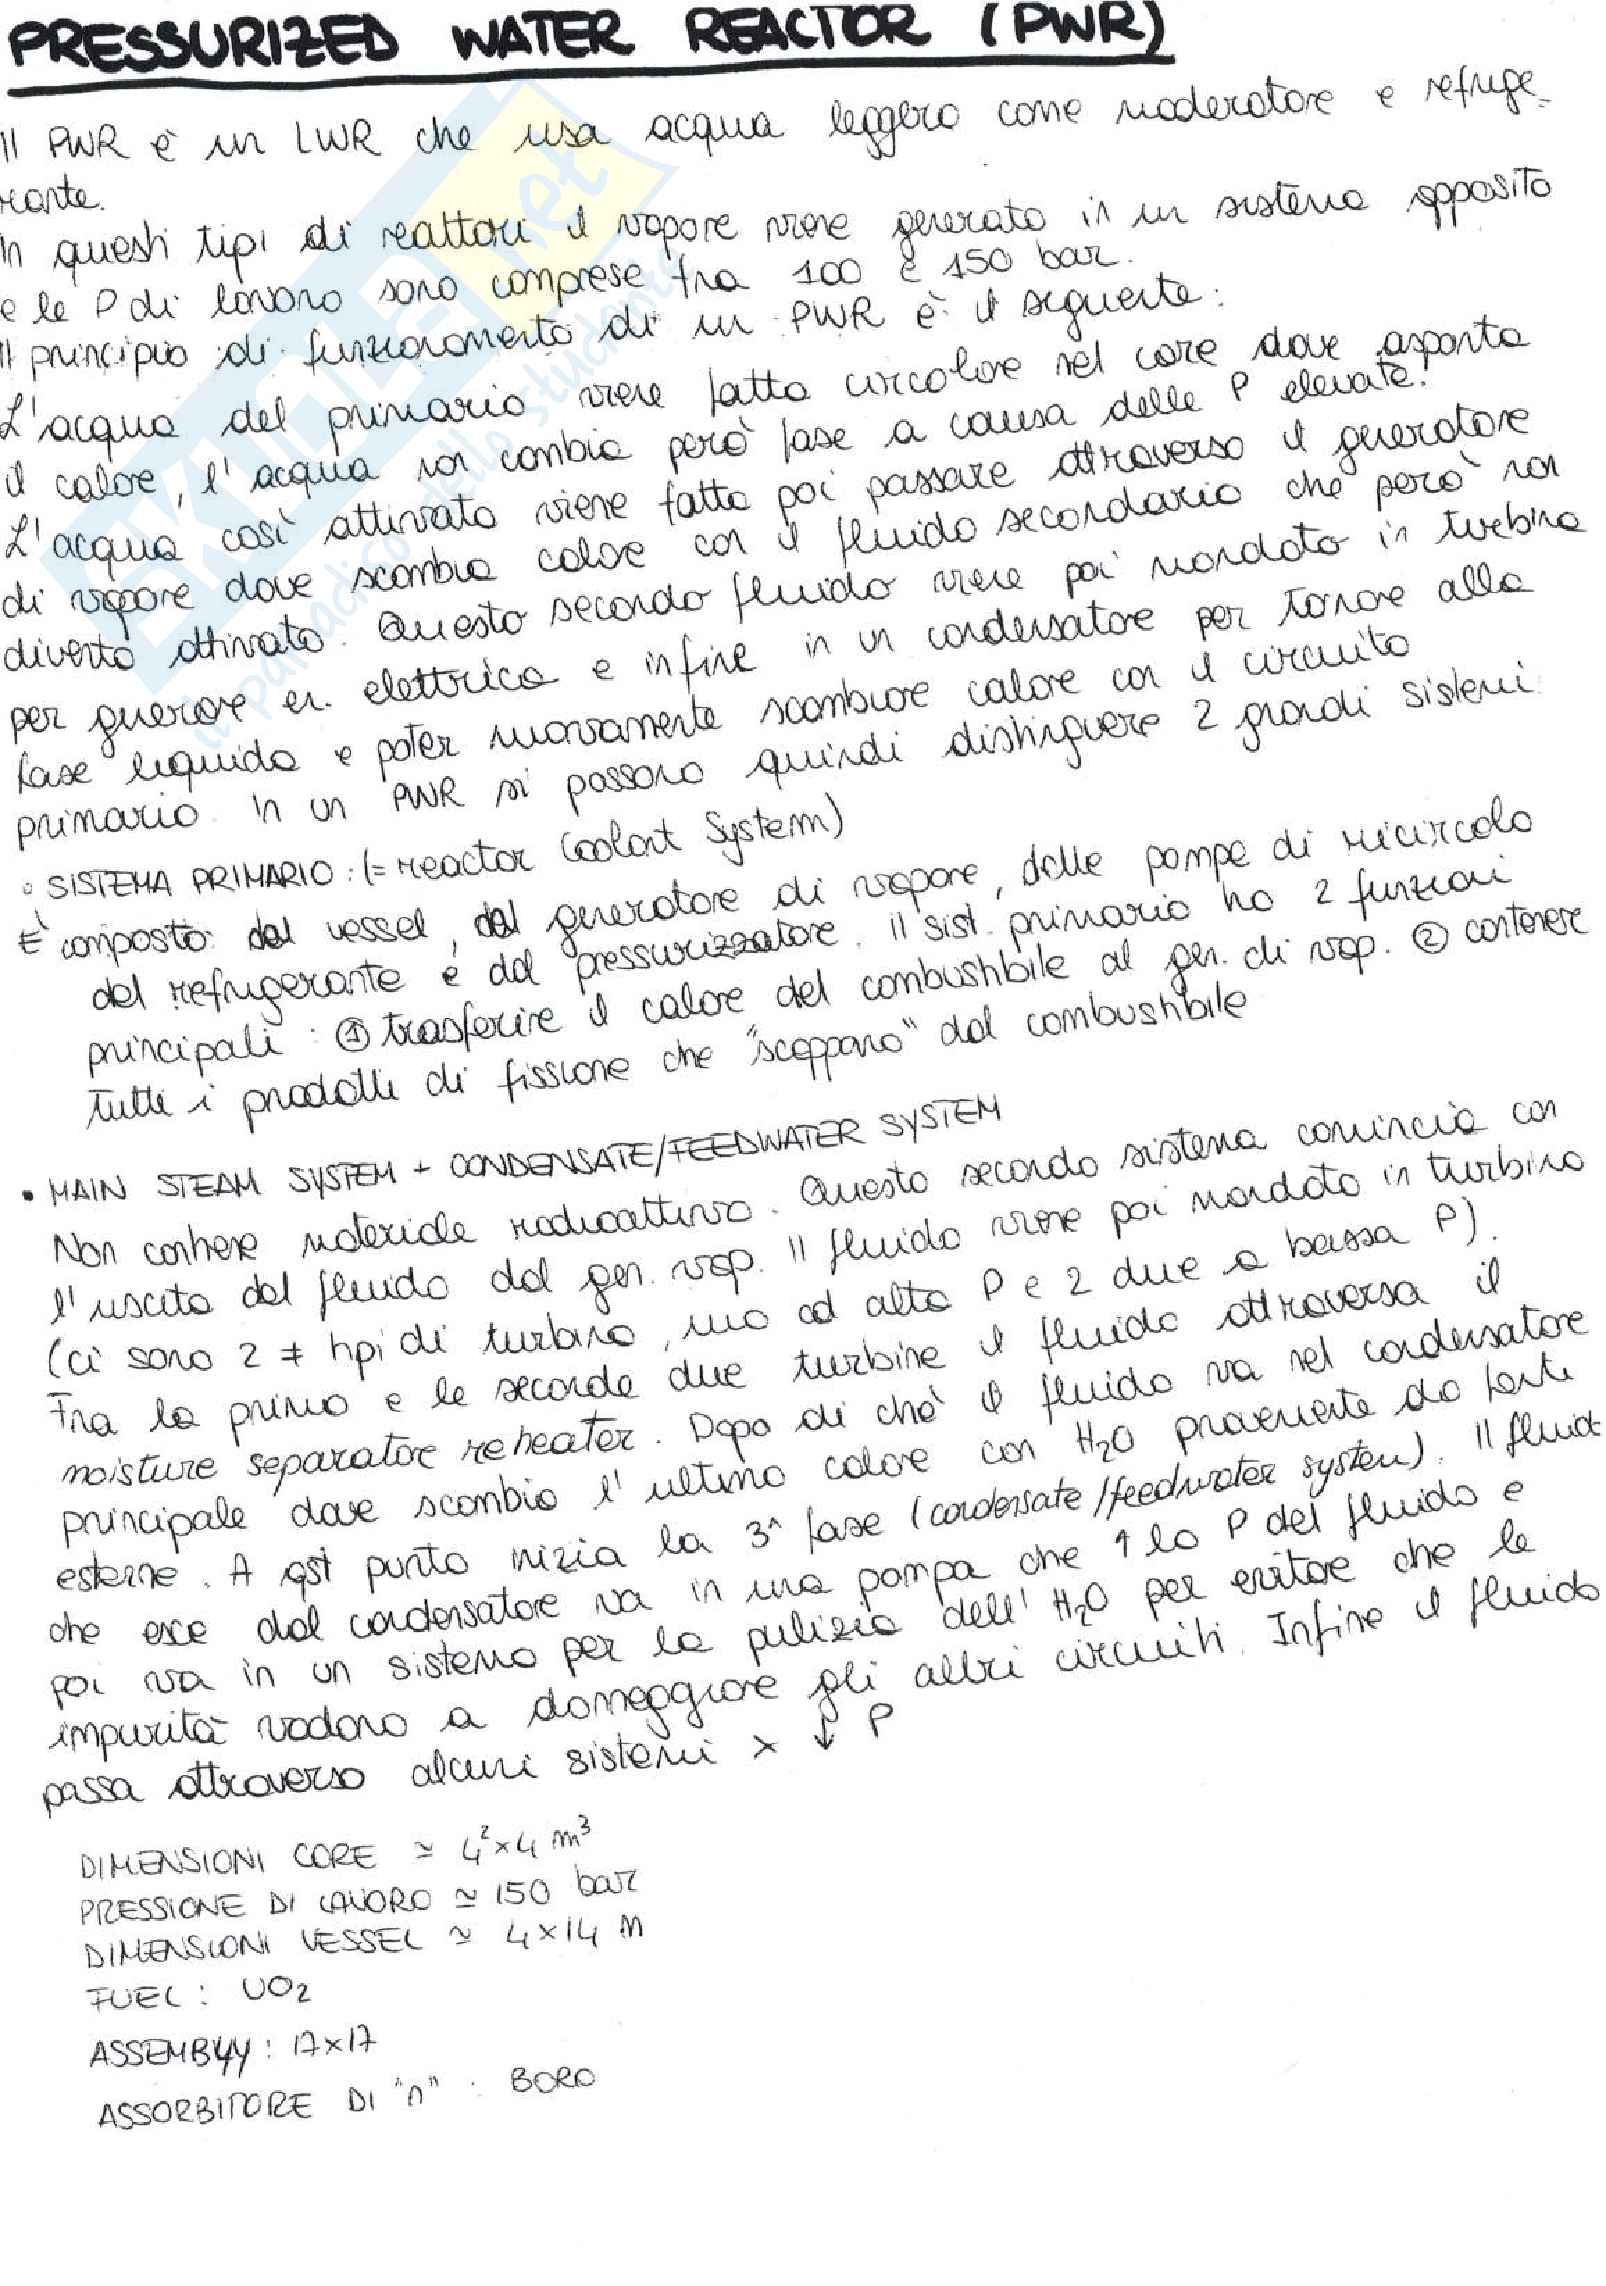 PRESSURIZED WATER REACTOR (PWR)
Il PWR è un LWR che usa acqua leggera come moderatore e refrige-
rante.
In questi tipi di reattori il vapore viene generato in un sistema apposito
e le P di lavoro sono comprese fra 100 e 150 bar.
Il principio di funzionamento di un PWR è il seguente:
L'acqua del primario viene fatta circolare nel core dove asporta
il calore, l'acqua non cambia però fase a causa delle P elevate.
L'acqua così attivata viene fatta poi passare attraverso il generatore
di vapore dove scambia calore con il fluido secondario che però non
diventa attivato. Questo secondo fluido viene poi mandato in turbina
per generare en. elettrica e infine in un condensatore per tornare alla
fase liquida e poter nuovamente scambiare calore con il circuito
primario. In un PWR si possono quindi distinguere 2 grandi sistemi:
• SISTEMA PRIMARIO: (= reactor Coolant System)
È composto: dal vessel, dal generatore di vapore, dalle pompe di ricircolo
del refrigerante e dal pressurizzatore. Il sist. primario ha 2 funzioni
principali: ① trasferire il calore del combustibile al gen. di vap. ② contenere
tutti i prodotti di fissione che "scappano" dal combustibile
• MAIN STEAM SYSTEM + CONDENSATE/FEEDWATER SYSTEM
Non contiene materiale radioattivo. Questo secondo sistema comincia con
l'uscita del fluido dal gen. vap. Il fluido viene poi mandato in turbina
(ci sono 2 ≠ tipi di turbina, una ad alta P e 2 due a bassa P).
Fra la prima e le seconde due turbine il fluido attraversa il
moisture separator reheater. Dopo di chè il fluido va nel condensatore
principale dove scambia l'ultimo calore con H₂O proveniente da fonti
esterne. A qst punto inizia la 3^ fase (condensate/feedwater system). Il fluido
che esce dal condensatore va in una pompa che ↑ la P del fluido e
poi va in un sistema per la pulizia dell'H₂O per evitare che le
impurità vadano a danneggiare gli altri circuiti. Infine il fluido
passa attraverso alcuni sistemi x ↓ P
DIMENSIONI CORE ≃ 4²x4 m³
PRESSIONE DI LAVORO ≃ 150 bar
DIMENSIONI VESSEL ≃ 4x14 m
FUEL: UO₂
ASSEMBLY: 17x17
ASSORBITORE DI "n": BORO
SKUOLA.net
il paradiso dello studente